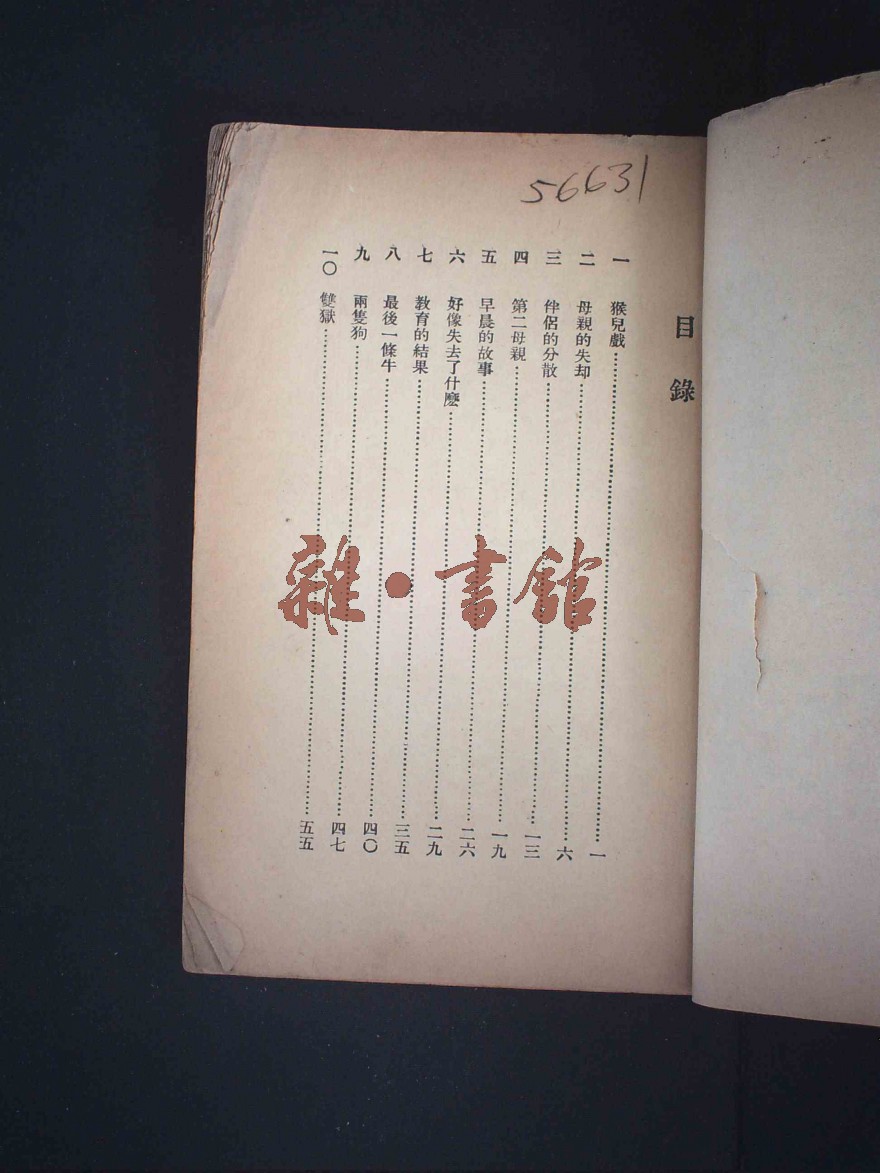 56631
目錄
一 猴兒戲……一
二 母親的失却……六
三 伴侶的分散……一三
四 第二母親……一九
五 早晨的故事……二六
六 好像失去了什麼……二九
七 教育的結果……三五
八 最後一條牛……四〇
九 兩隻狗……四七
一〇 雙獄……五五
雜·書館